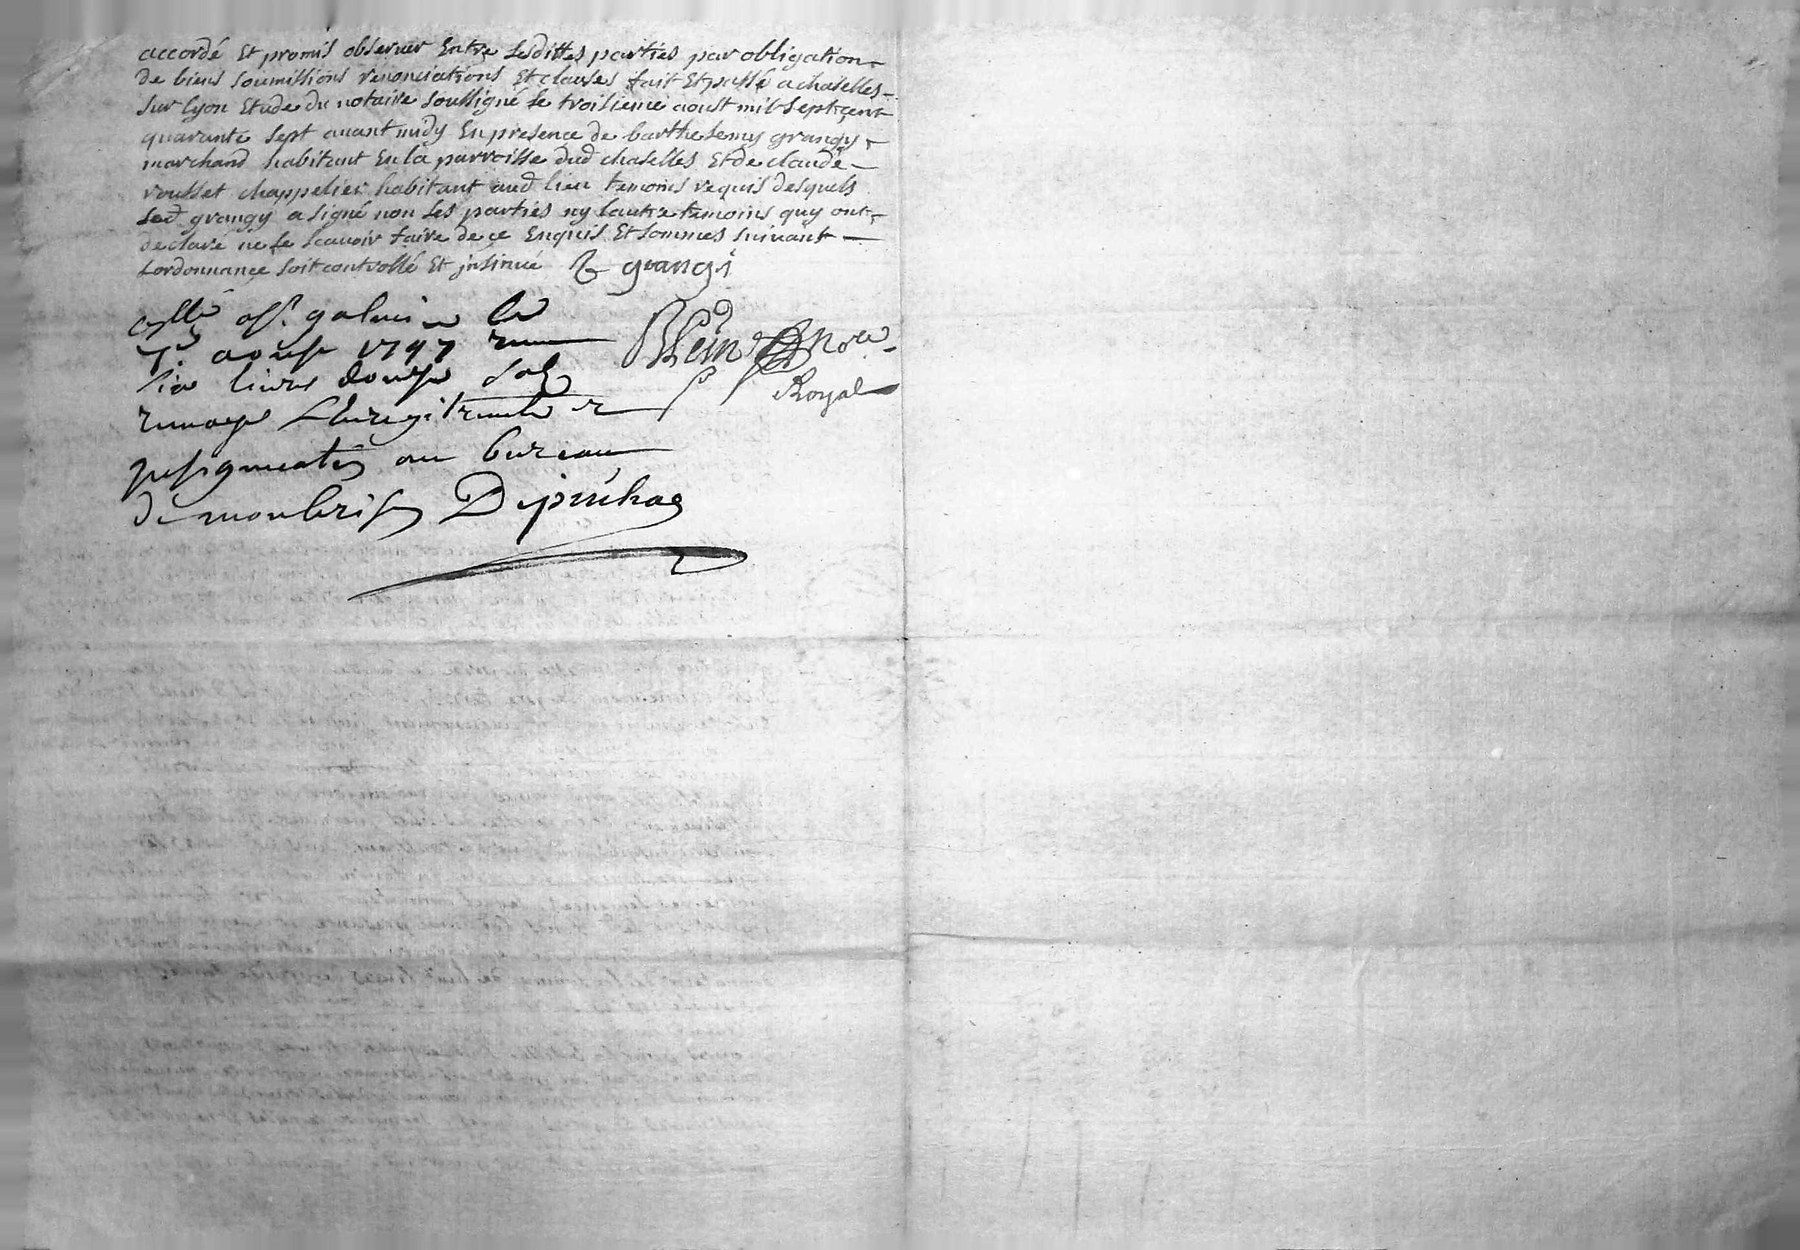 accordé Et promis observer Entre Lesdittes parties par obligation
de biens soumissions renonciations Et clauses fait Et passé a chaselles
sur lyon Etude du notaire soussigné Le troisieme aoust mil sept cent
quarante sept avant midy En presence de barthelemy grangy
marchand habitant En la parroisse dud chaselles Et de claude
rousset chappelier habitant aud lieu temoins requis desquels
Led grangy a signé non Les parties ny lautre temoins quy ont
declaré ne Le scavoir faire de ce Enquis Et sommes suivant
Lordonnance soit controllé Et jnsinué grangi
a St galmier le
aoust 1747 recu
six livres douze sols
Royal
renvoyé L'enregistrement
au bureau
de montbrison